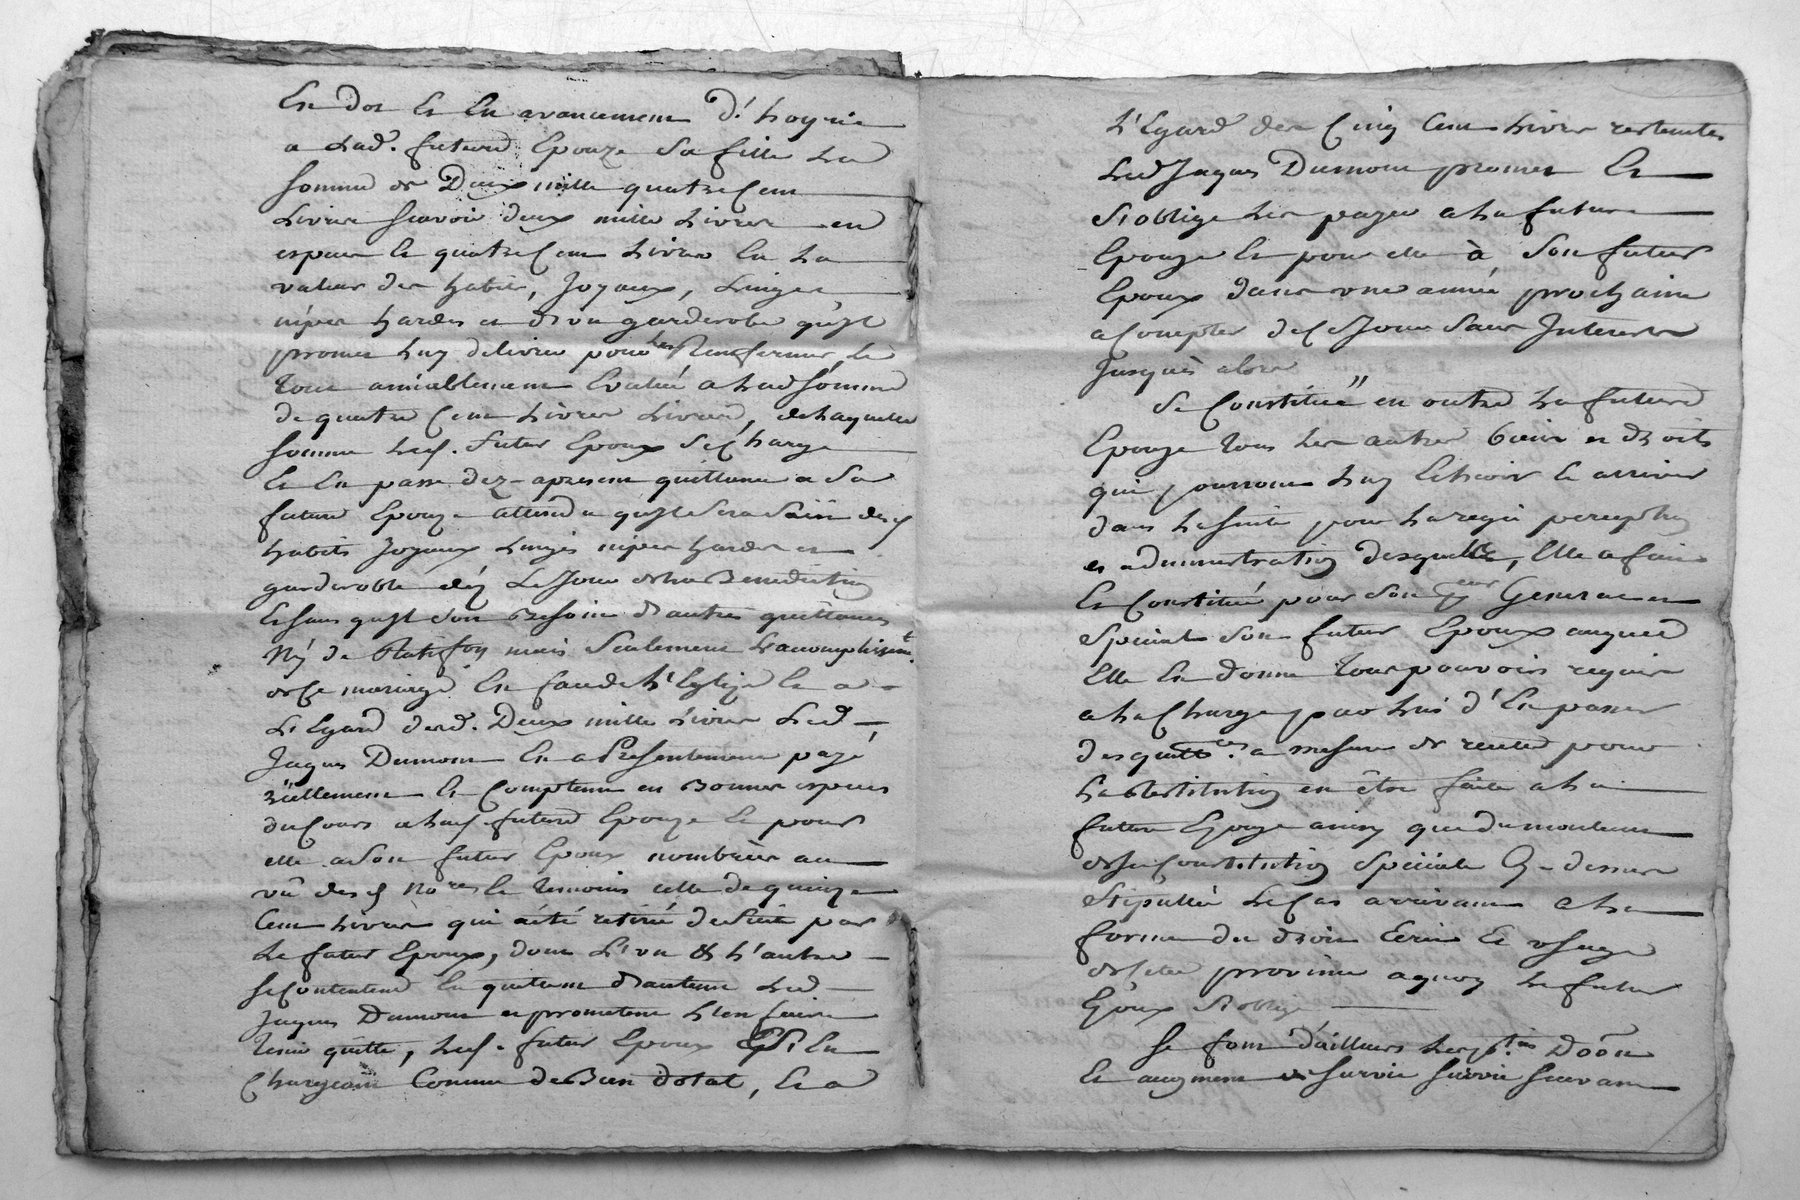 En dot Et En avancement d'hoyrie
a Lad. future Epouze Sa fille La
Somme de Deux mille quatre Cent
Livres Scavoir deux mille Livres en
especes Et quatre Cent Livres En La
valeur des habits, Joyaux, Linges
nipes hardes et d'un garderobe qu'Il
promet Luy delivrer pour les Renfermer, Le
tout amiablement Evalué a Lad Somme
de quatre Cent Livres Livres, de Laquelle
Somme Led. futur Epoux Se Charge
Et En passe dez-apresent quittance a Sa
future Epouze attendu qu'Il Sera Saisi desd
habits Joyaux Linges nipes hardes et
garderobe déz Le Jour de La Benediction
Et Sans qu'Il Soit Besoin d'autre quittance
Ny de Ratiffon mais Seulement L'acomplissemt.
de Ce mariage En face de L'Eglize Et a
L'Egard desd. Deux mille Livres Led
Jaques Dumont En a Presentement payé
réellement Et Comptant en Bonnes especes
du Cours a Lad. future Epouze Et pour
elle a Son futur Epoux nombrées au
vû desd Nores Et temoins celle de quinze
Cent Livres qui a été retiré de Suite par
Le futur Epoux, dont L'un & L'autre
Se Contentent En quitent d'autant Led
Jaques Dumont et promettent L'en faire
tenir quitte, Led. futur Epoux S'En
Chargeant Comme de Bien dotal, Et a
L'Egard des Cinq Cent Livres restantes
Led Jaques Dumont promet Et
S'oblige Les payer a La future
Epouze Et pour elle à Son futur
Epoux dans une année prochaine
a Compter de Ce Jour Sans Interets
Jusques alors
Se Constitue en outre La future
Epouze tous Les autres biens et droits
qui pourront Luy Echeoir Et arriver
dans La Suite pour La regie perception
et administration desquels, Elle a fait
Et Constitué pour Son preur General et
Special Son futur Epoux auquel
Elle En donne tout pouvoir requis
a La Charge par Luy d'En passer
des quittces. a mesure de recette pour
La Restitution en être faite a La
future Epouze ainsy que du montant
de Sa Constitution Speciale Cy-dessus
Stipullée Le Cas arrivant a La
forme du droit Ecrit Et usage
de Cette province a quoy Le futur
Epoux S'oblige
Se font d'ailleurs Les pties Dõõn
Et augment de Survie Survie Suivant